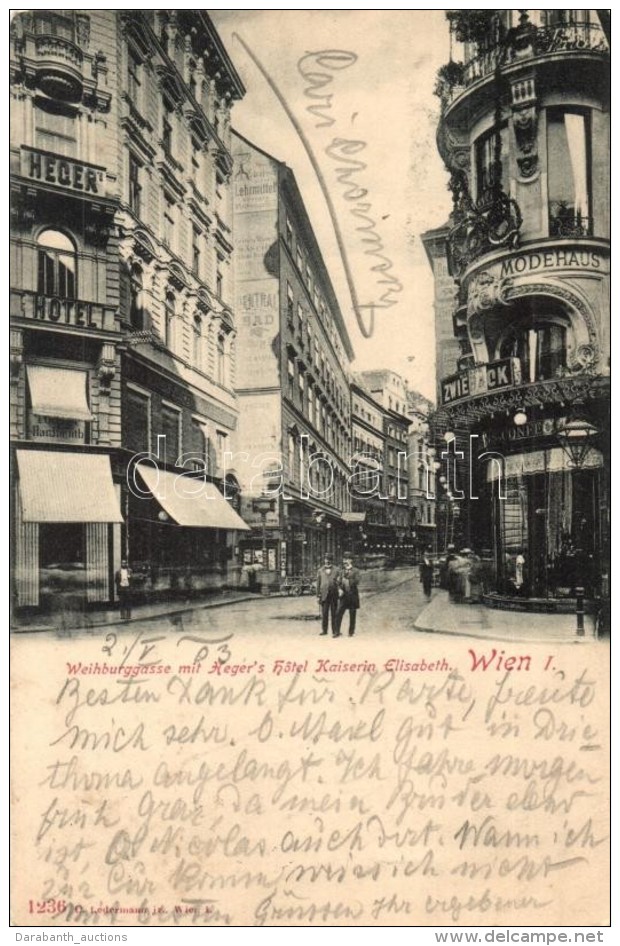 HEGER'
HÔTEL
Lehrmittel
CENTRAL
BAD
MODEHAUS
ZWIEBACK
CONFEC
darabanth.com
2/V 03
Weihburggasse mit Heger's Hôtel Kaiserin Elisabeth. Wien I.
Besten Dank für Karte, freute
mich sehr. O. Maxl gut in Drie
thoma angelangt. Ich fahre morgen
früh Graz, da mein Bruder eben
ist, Nicolas auch dort. Wann ich
zur Cur komme, weiss ich nicht
mit besten Grüssen Ihr ergebener
1236 C. Ledermann jr., Wien I.
Darabanth_auctions
www.delcampe.net